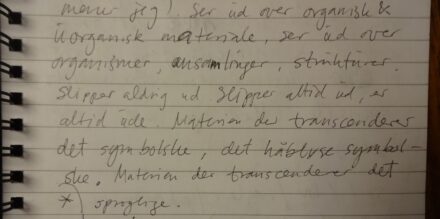 mener jeg! Ser ud over organisk &
uorganisk materiale, ser ud over
organismer, ansamlinger, strukturer.
Slipper aldrig ud. Slipper altid ud, er
altid ude. Materien der transcenderer
det symbolske, det håbløse symbol-
ske. Materien der transcenderer det
* sproglige.